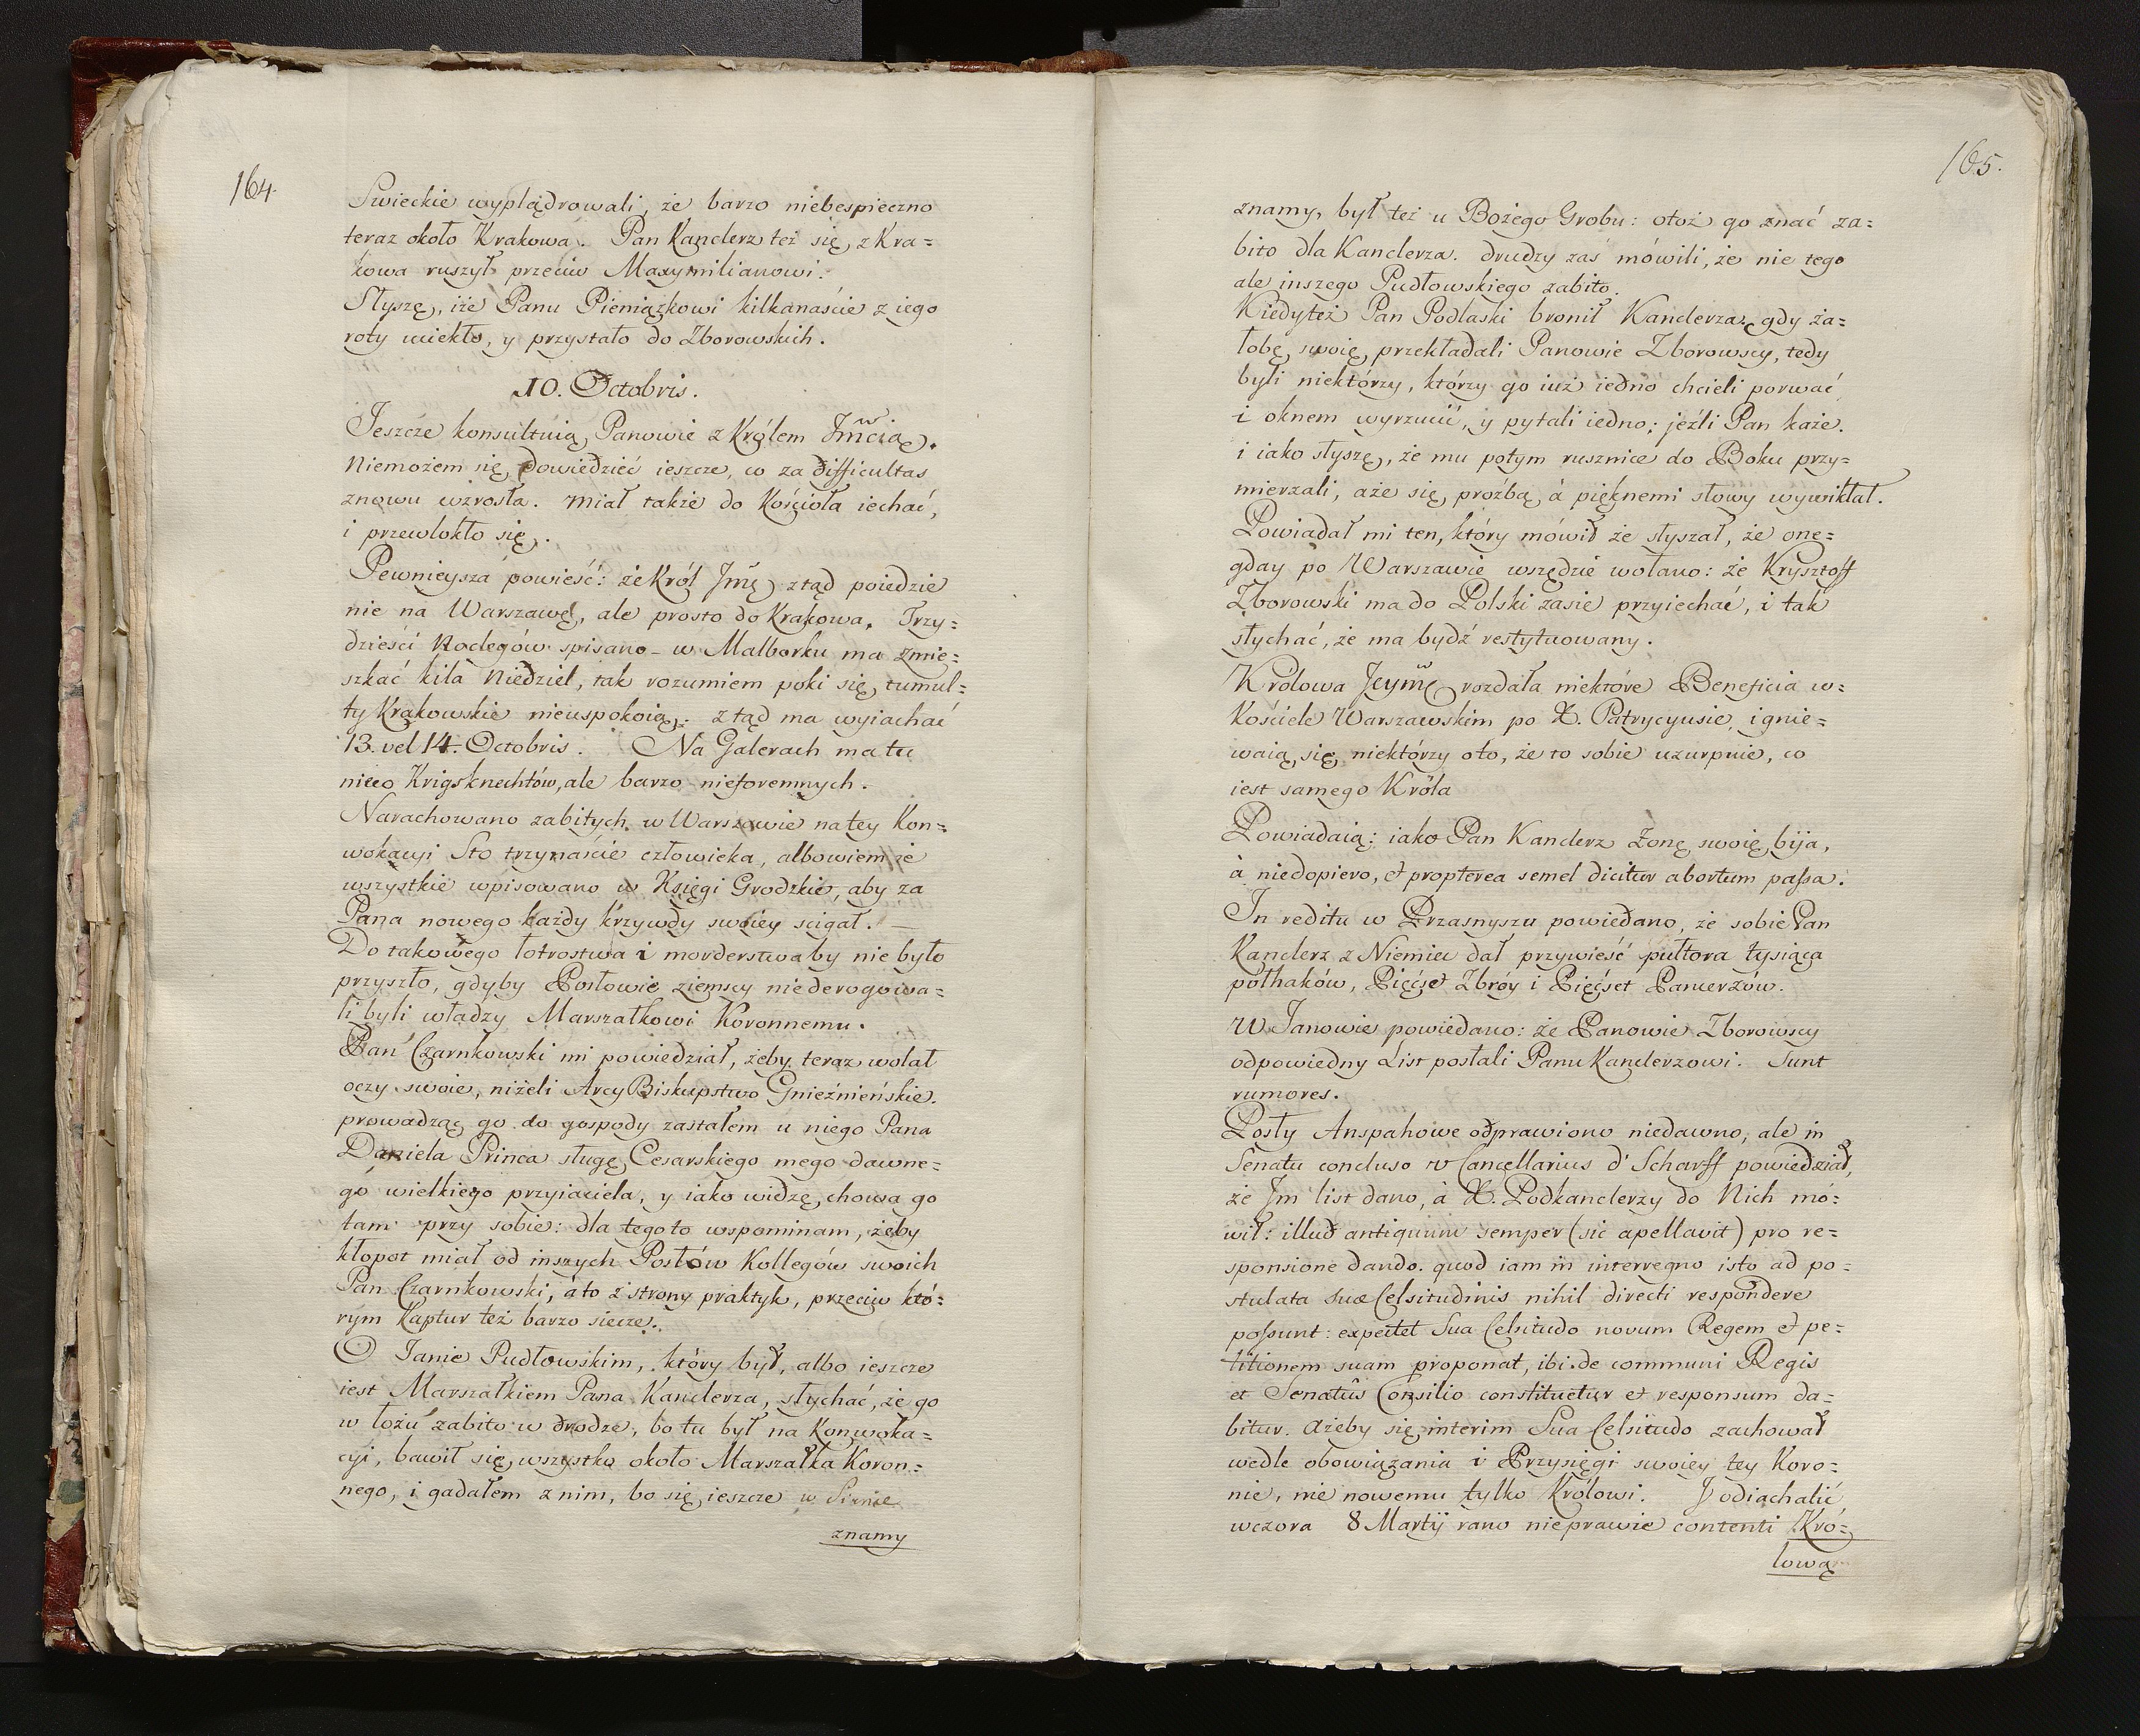 164
Swieckie wyplądrowali, że barzo niebespieczno
teraz około Krakowa. Pan Kanclerz też się z Kra=
kowa ruszył przeciw Maxymilianowi.
Słyszę, iże Panu Pieniązkowi kilkanaście z iego
roty uciekło, y przystało do Zborowskich.
10. Octobris.
Jeszcze konsultuią Panowie z Królem Jmcią.
Niemożem się dowiedzieć ieszcze, co za difficultas
znowu wzrosła. miał także do Kościoła iechać,
i przewlokło się.
Pewnieysza powieść: że Król Jmć ztąd poiedzie
nie na Warszawę, ale prosto do Krakowa. Trzy=
dzieści Noclegów spisano - w Malborku ma zmie=
szkać kila Niedziel, tak rozumiem poki się tumul=
ty Krakowskie nieuspokoią. ztąd ma wyiachać
13. vel 14. Octobris. Na Galerach ma tu
nieco Krigsknechtów, ale barzo nieforemnych.
Narachowano zabitych w Warszawie na tey Kon=
wokacyi Sto trzynaście człowieka, albowiem ie
wszystkie wpisowano w Księgi Grodzkie, aby za
Pana nowego każdy krzywdy swoiey scigał. —
Do takowego łotrostwa i morderstwa by nie było
przyszło, gdyby Posłowie ziemscy niederogowa=
li byli władzy Marszałkowi Koronnemu.
Pan Czarnkowski mi powiedział, żeby teraz wolał
oczy swoie, niżeli Arcy Biskupstwo Gnieźnieńskie.
prowadząc go do gospody zastałem u niego Pana
Daniela Princa sługę Cesarskiego mego dawne=
go wielkiego przyiaciela, y iako widzę chowa go
tam przy sobie: dla tego to wspominam, żeby
kłopot miał od inszych Posłów Kollegów swoich
Pan Czarnkowski, á to z strony praktyk, przeciw któ=
rym Kaptur też barzo siecze.
O Janie Pudłowskim, który był, albo ieszcze
iest Marszałkiem Pana Kanclerza, słychać, że go
w łożu zabito w drodze, bo tu był na Konwoka=
cyi, bawił się wszystko około Marszałka Koron=
nego, i gadałem z nim, bo się ieszcze w
znamy
165.
znamy, był też u Bożego Grobu: otoż go znać za=
bito dla Kanclerza. drudzy zaś mówili, że nie tego
ale inszego Pudłowskiego zabito.
Kiedyteż Pan Podlaski bronił Kanclerza, gdy ża=
łobę swoię przekładali Panowie Zborowscy, tedy
byli niektórzy, którzy go iuż iedno chcieli porwać
i oknem wyrzucić, y pytali iedno; jeźli Pan każe.
i iako słyszę, że mu potym rusznice do Boku przy=
mierzali, aże się proźbą á pięknemi słowy wywikłał.
Powiadał mi ten, który mówił że słyszał, że one=
gday po Warszawie wszędzie wołano: że Krysztoff
Zborowski ma do Polski zasie przyiechać, i tak
słychać, że ma bydź restytuowany.
Królowa Jeymć rozdała niektóre Beneficia w=
Kościele Warszawskim po X. Patrycyusie, i gnie=
waią się niektórzy oto, że to sobie uzurpuie, co
iest samego Króla
Powiadaią: iako Pan Kanclerz żonę swoię bija,
à niedopiero, et propterea semel dicitur abortum passa.
In reditu w Przasnyszu powiedano, że sobie Pan
Kanclerz z Niemiec dał przywieść pułtora tysiąca
półhaków, Pięćset Zbróy i Pięćset Pancerzów.
W Janowie powiedano: że Panowie Zborowscy
odpowiedny List posłali Panu Kanclerzowi. Sunt
rumores.
Posły Anspahowe odprawiono niedawno, ale in
Senatu concluso Cancellarius d' Scharff powiedział,
że Jm list dano, à X. Podkanclerzy do Nich mó=
wił: illud antiquum semper (sic apellavit) pro re=
sponsione dando. quod iam in interregno isto ad po=
stulata suæ Celsitudinis nihil directi respondere
possunt: expectet Sua Celsitudo novum Regem et pe=
titionem suam proponat, ibi de communi Regis
et Senatûs Consilio constituetur et responsum da=
bitur. Ażeby się interim Sua Celsitudo zachował
wedle obowiązania i Przysięgi swoiey tey Koro=
nie, nie nowemu tylko Królowi. J odiachalić
wczora 8 Martij rano nieprawie contenti Kró=
lową